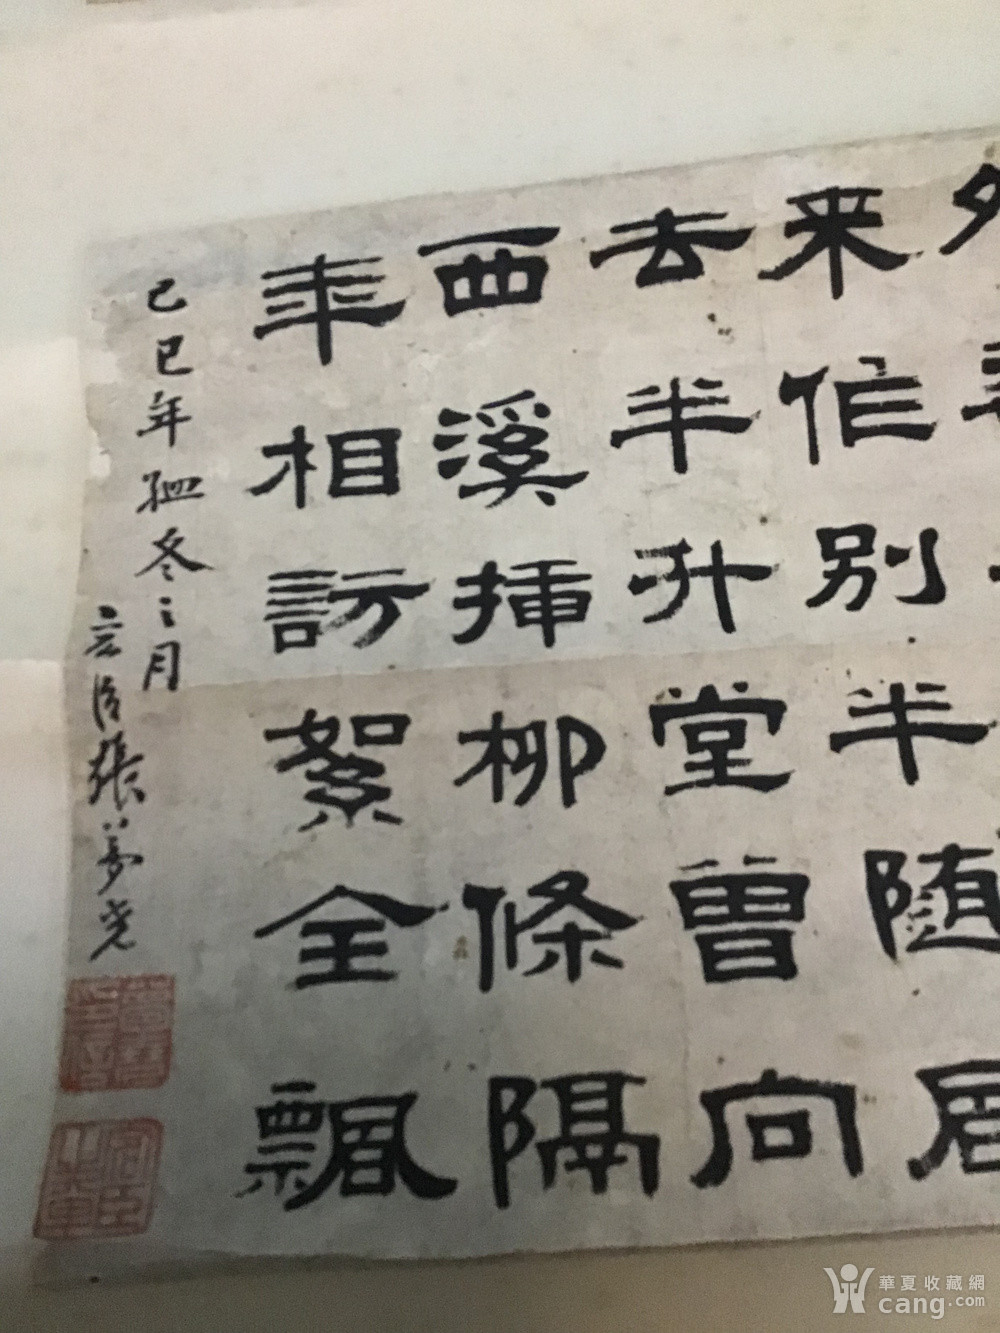 来作别半随
去半升堂曾向
西溪插柳條隔
年相訪絮全飄
己巳年冬之月
張夢尧
華夏收藏網
cang.com